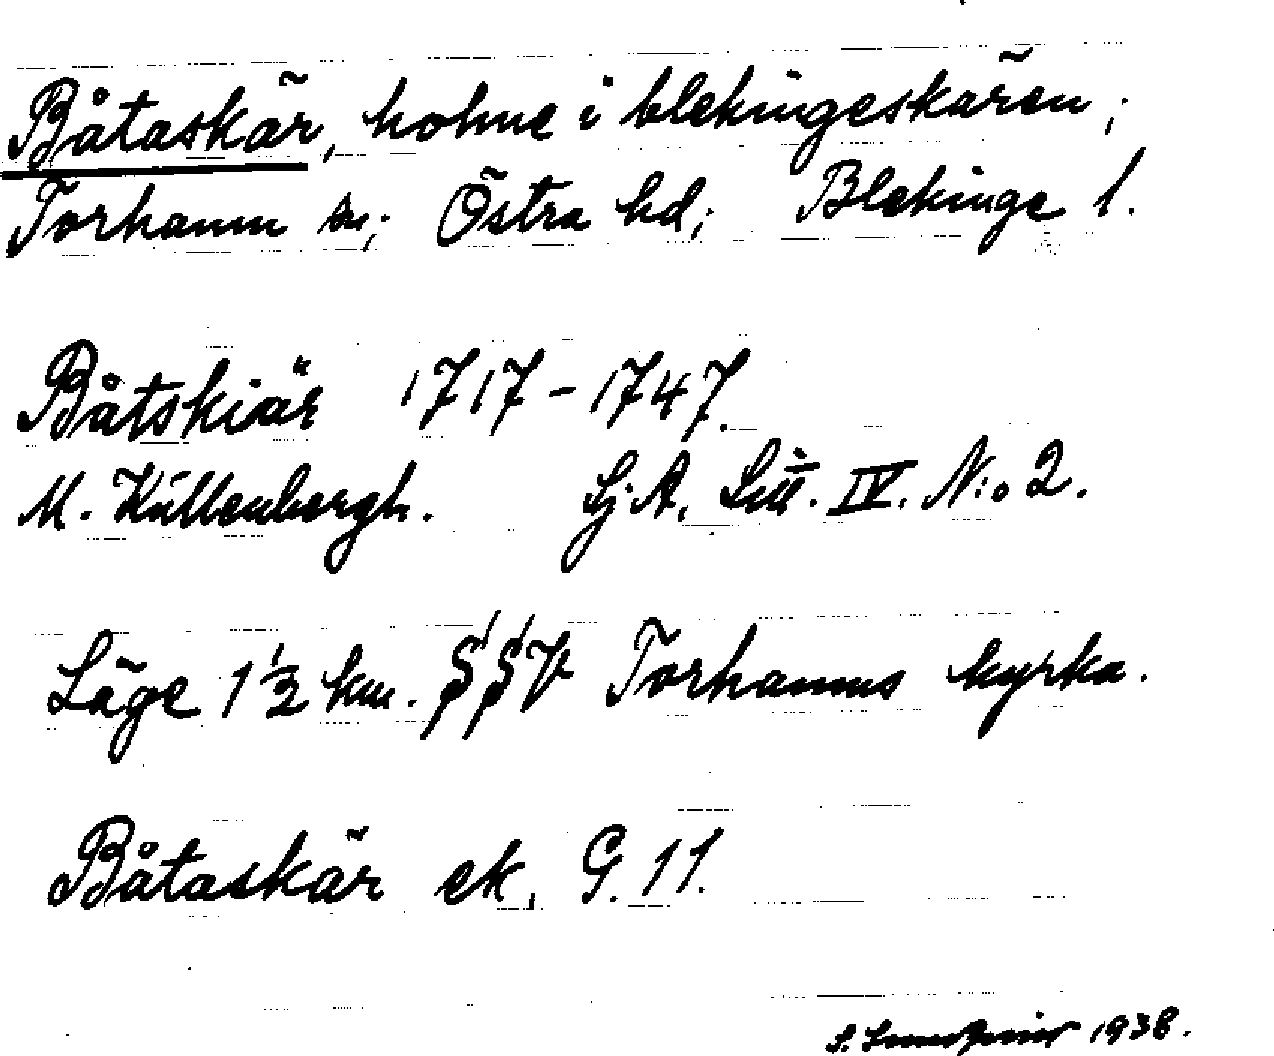 Båtaskär, holme i blekingeskären;
Torhamn sn; Östra hd; Blekinge l.
Båtskiär 1717-1747.
M. Küllenbergh. Sj. A. Litt. IV. N:o 2.
Läge 1 1/2 km. SSV Torhamns kyrka.
Båtaskär ek. G. 11.
S. 1938.